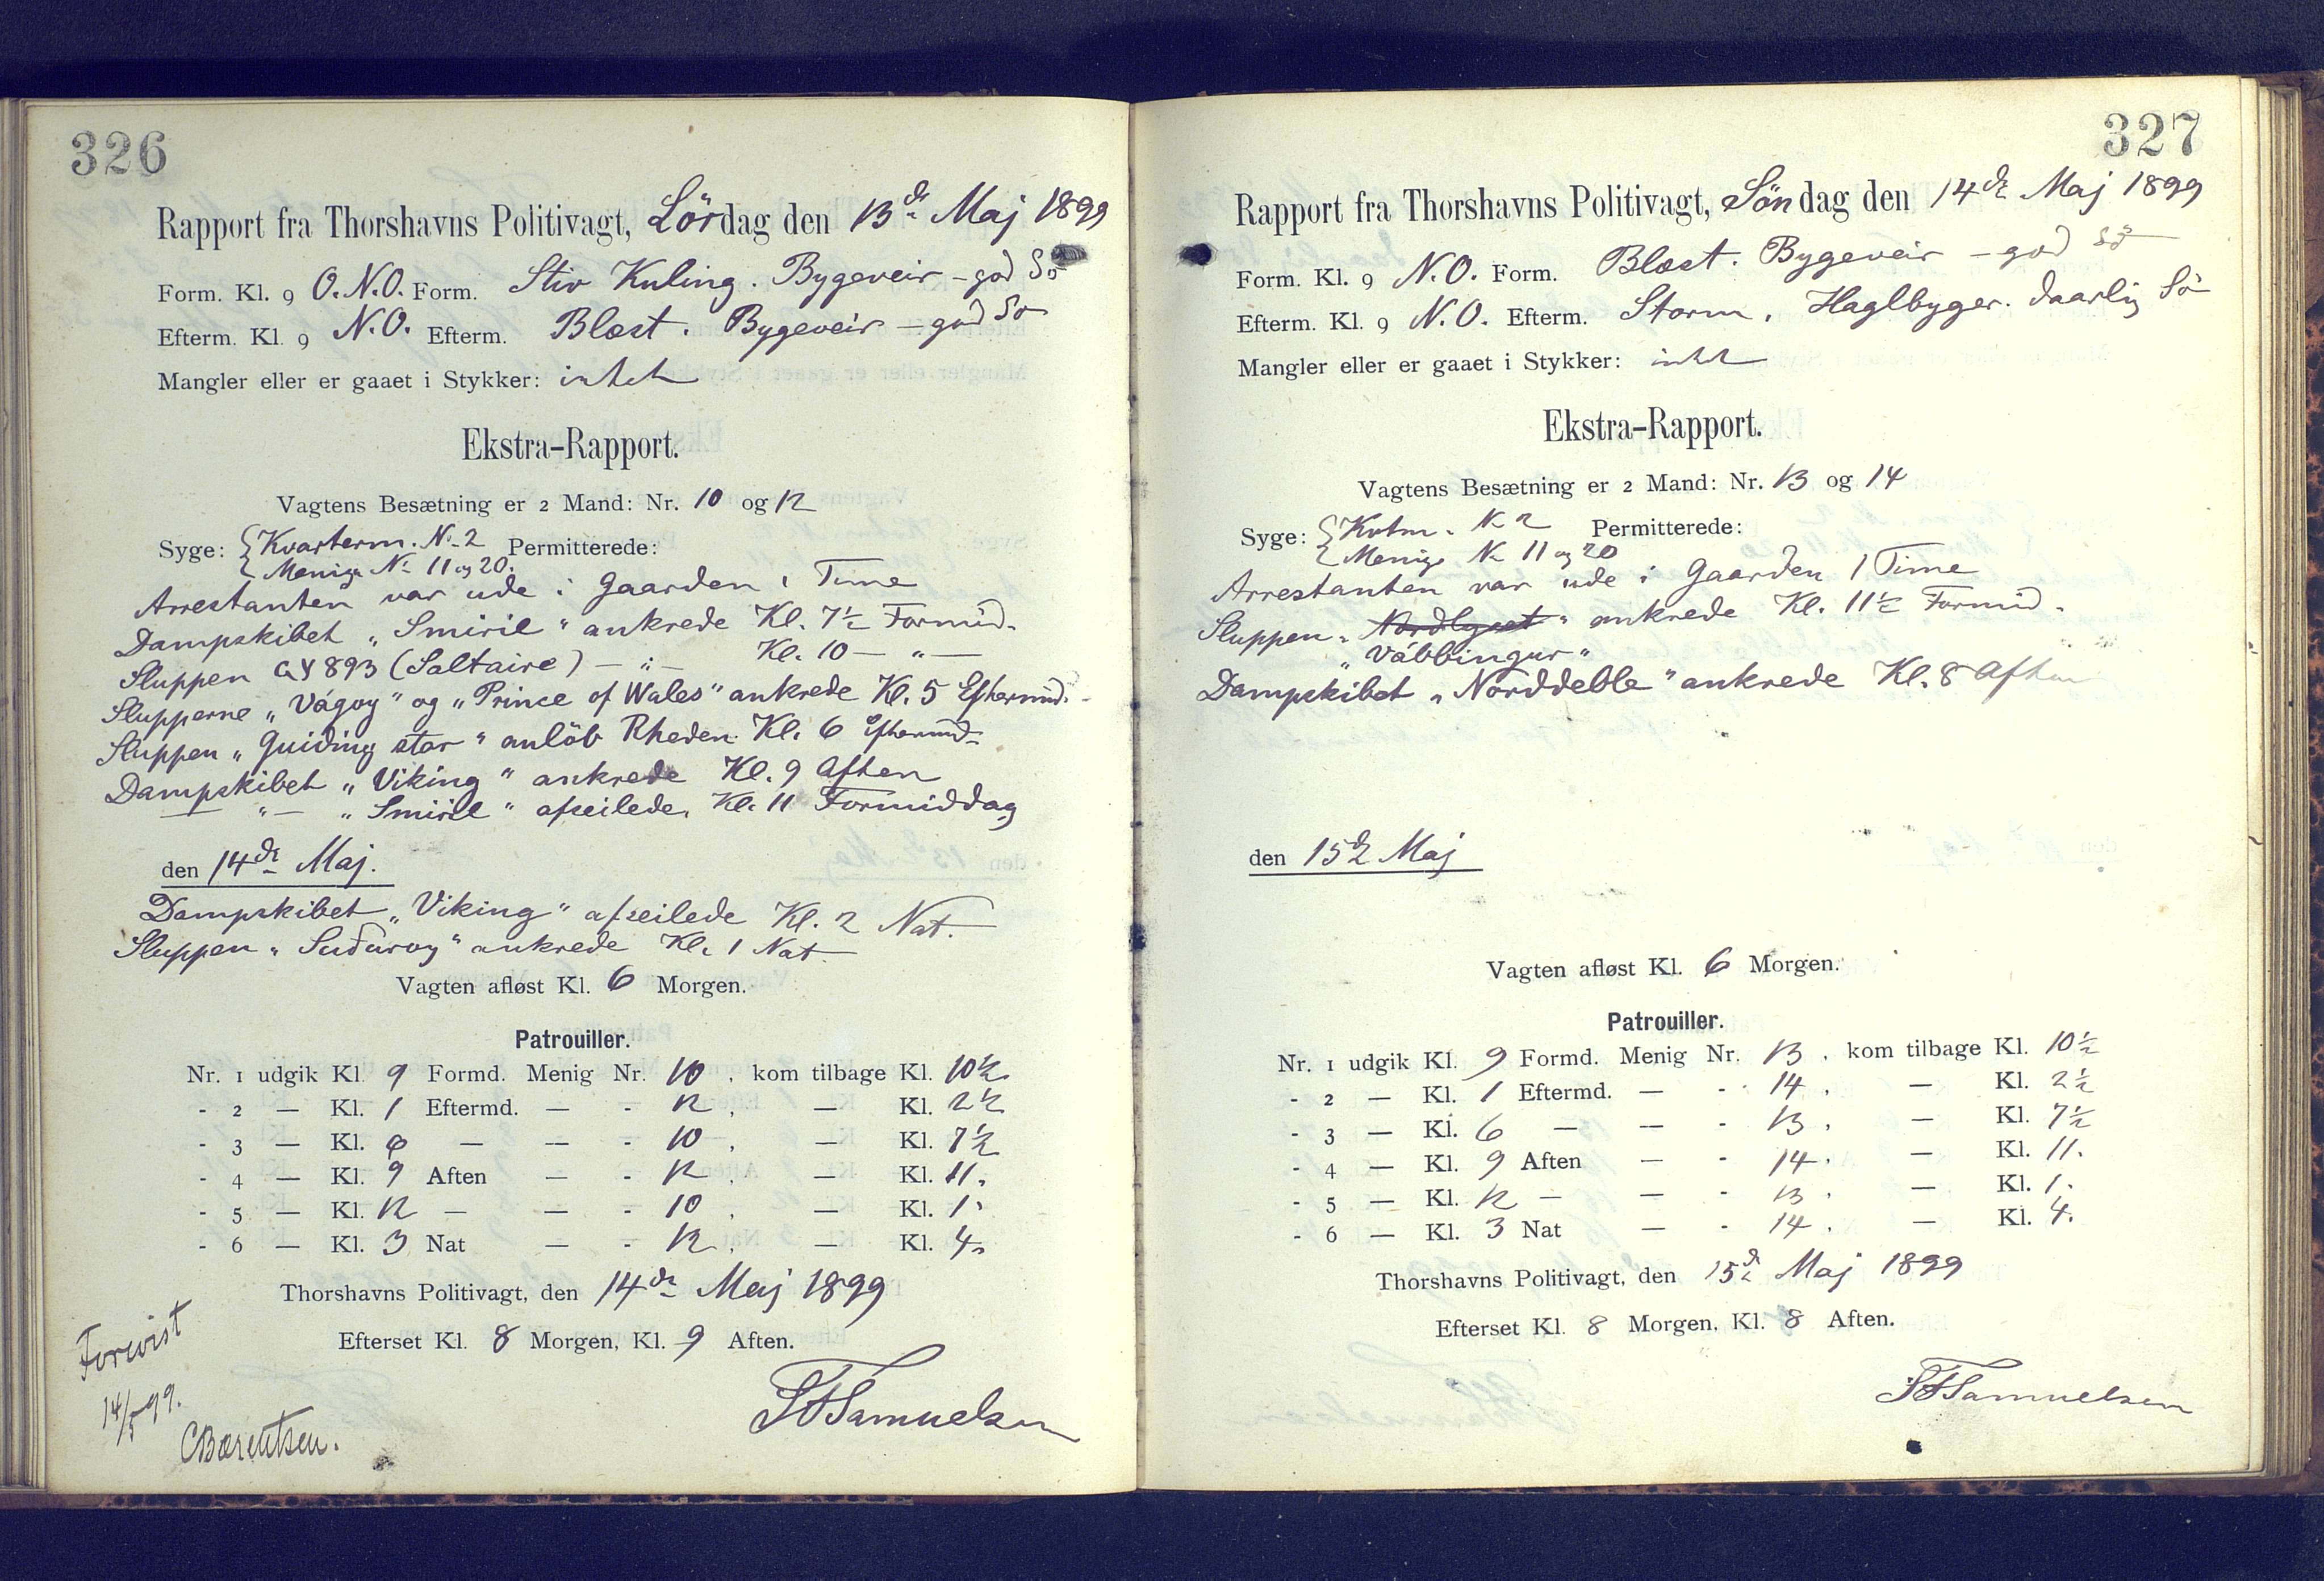 326
Rapport fra Thorshavns Politivagt, Lördag den 13de Maj 1899
Form. Kl. 9 O.N.O. Form. Stiv Kuling. Bygeveir - god Sö
Efterm. Kl. 9 N.O. Efterm. Blæst. Bygeveir - god Sö
Mangler eller er gaaet i Stykker: intet
Ekstra-Rapport.
Vagtens Besætning er 2 Mand: Nr. 10 og 12
Syge: { Kvarterm. No 2 Permitterede:
{ Menige No 11 og 20.
Arrestanten var ude i Gaarden 1 Time
Dampskibet „Smiril" ankrede Kl. 7½ Formid.
Sluppen GY 893 (Saltaire) — „ — Kl. 10 — „ —
Slupperne „Vágoy" og „Prince of Wales" ankrede Kl. 5 Eftermid.
Sluppen „Guiding star" anlöb Rheden Kl. 6 Eftermid.
Dampskibet „Viking" ankrede Kl. 9 Aften
— „ — „Smiril" afseilede Kl. 11 Formiddag
den 14de Maj.
Dampskibet „Viking" afseilede Kl. 2 Nat.
Sluppen „Suduroy" ankrede Kl. 1 Nat
Vagten afløst Kl. 6 Morgen.
Patrouiller.
Nr. 1 udgik Kl. 9 Formd. Menig Nr. 10, kom tilbage Kl. 10½
- 2 — Kl. 1 Eftermd. — - 12, — Kl. 2½
- 3 — Kl. 6 — — - 10, — Kl. 7½
- 4 — Kl. 9 Aften — - 12, — Kl. 11.
- 5 — Kl. 12 — — - 10, — Kl. 1.
- 6 — Kl. 3 Nat — - 12, — Kl. 4.
Thorshavns Politivagt, den 14de Maj 1899
Efterset Kl. 8 Morgen, Kl. 9 Aften.
Forevist
14/5 99.
CBærentsen.
Samuelsen
327
Rapport fra Thorshavns Politivagt, Söndag den 14de Maj 1899
Form. Kl. 9 N.O. Form. Blæst. Bygeveir - god Sö
Efterm. Kl. 9 N.O. Efterm. Storm. Haglbyger. daarlig Sö
Mangler eller er gaaet i Stykker: intet
Ekstra-Rapport.
Vagtens Besætning er 2 Mand: Nr. 13 og 14
Syge: { Kvtm. No 2 Permitterede:
{ Menige No 11 og 20
Arrestanten var ude i Gaarden 1 Time
Sluppen „Nordlyset" ankrede Kl. 11½ Formid.
„Vábbingur"
Dampskibet „Norddeble" ankrede Kl. 8 Aften
den 15de Maj
Vagten afløst Kl. 6 Morgen.
Patrouiller.
Nr. 1 udgik Kl. 9 Formd. Menig Nr. 13, kom tilbage Kl. 10½
- 2 — Kl. 1 Eftermd. — - 14, — Kl. 2½
- 3 — Kl. 6 — — - 13, — Kl. 7½
- 4 — Kl. 9 Aften — - 14, — Kl. 11.
- 5 — Kl. 12 — — - 13, — Kl. 1.
- 6 — Kl. 3 Nat — - 14, — Kl. 4.
Thorshavns Politivagt, den 15de Maj 1899
Efterset Kl. 8 Morgen, Kl. 8 Aften.
Samuelsen